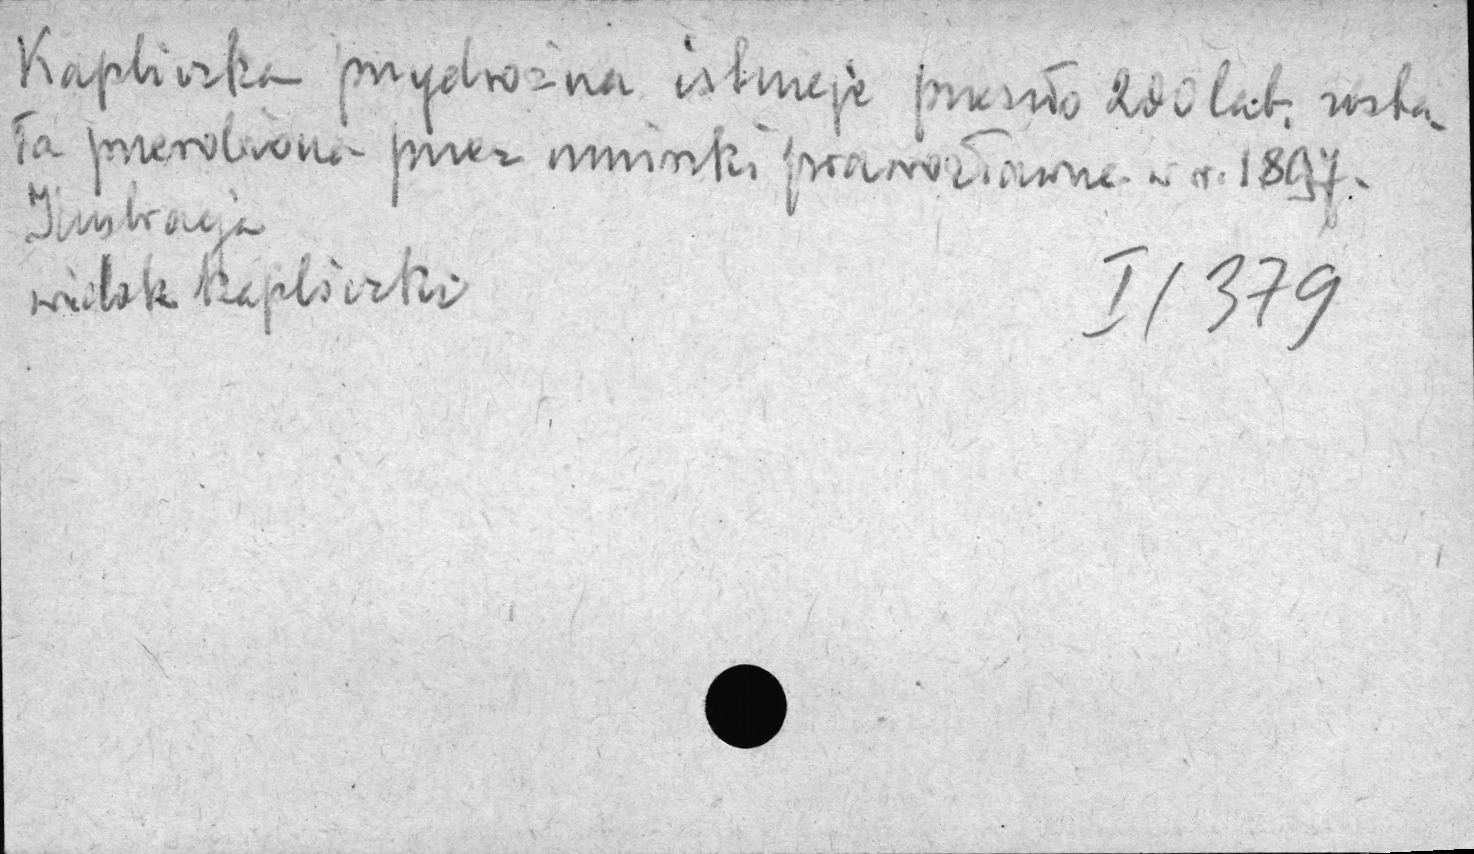 Kapliczka przydrożna istnieje przeszło 200 lat, zosta-
ła przerobiona przez mniszki prawosławne w r. 1897.
Ilustracja
widok kapliczki
I/379